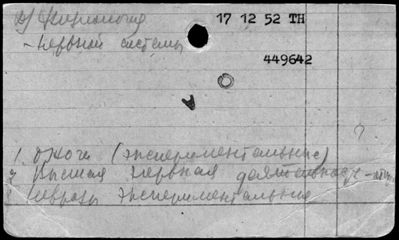 а) Физиология 17 12 52 ТН
- нервной системы
449642
1. Ожоги (экспериментальные)
2 Высшая нервная деятельность
3 Неврозы экспериментальные